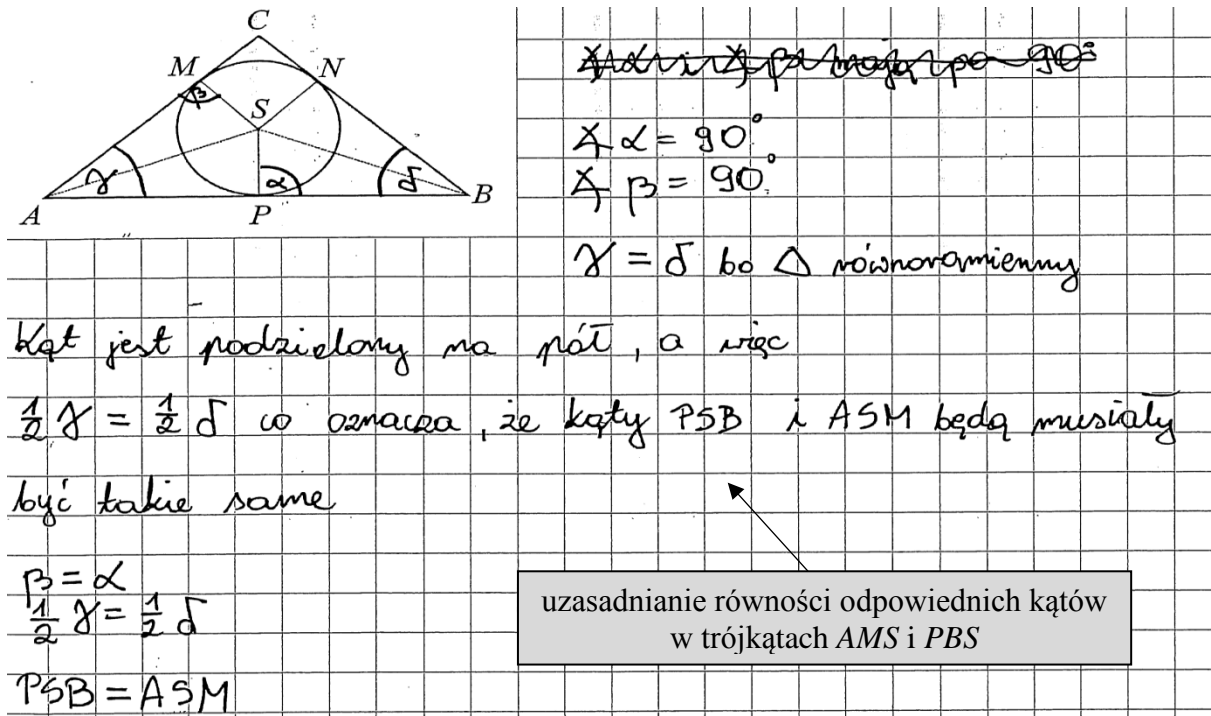 C
M
N
β
S
γ
α
δ
A
P
B
∡α i ∡β mają po 90°
∡ α = 90°
∡ β = 90°
γ = δ bo △ równoramienny
Kąt jest podzielony na pół, a więc
1/2 γ = 1/2 δ co oznacza, że kąty PSB i ASM będą musiały
być takie same
β = α
1/2 γ = 1/2 δ
PSB = ASM
uzasadnianie równości odpowiednich kątów
w trójkątach AMS i PBS